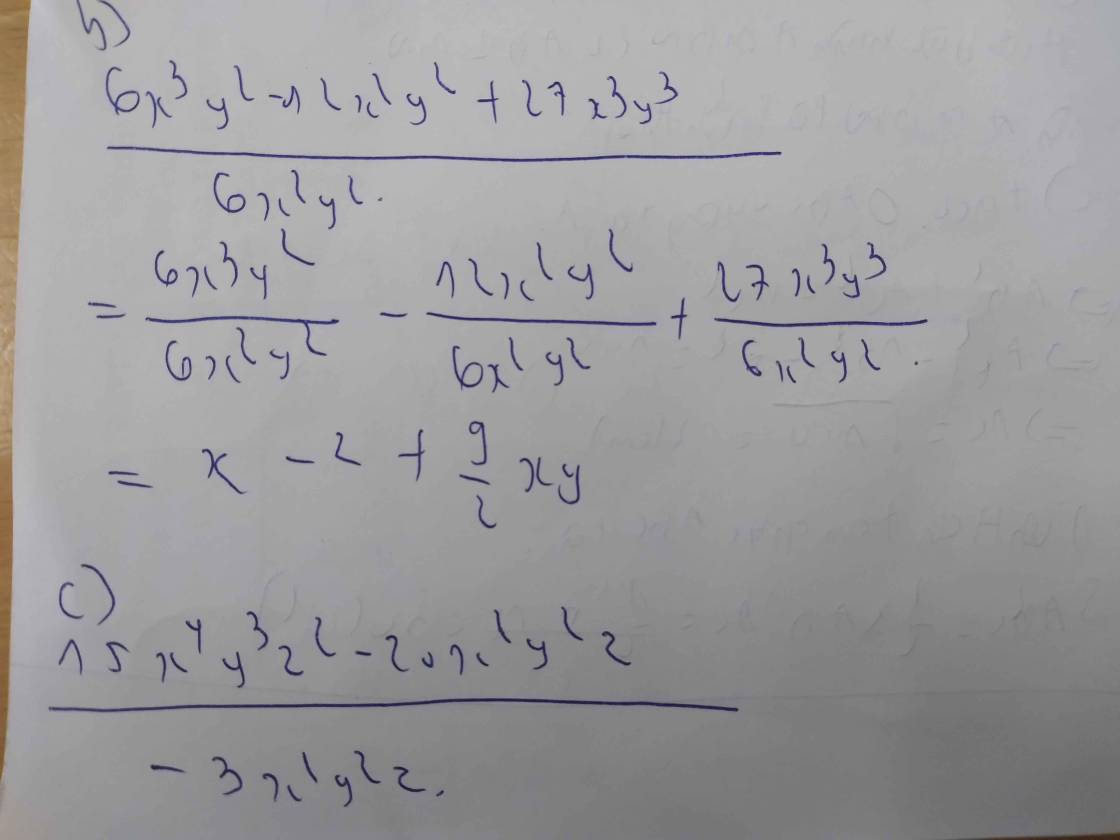 b)
6x³y² - 12x²y² + 27x³y³
6x²y².
= 6x³y²/6x²y² - 12x²y²/6x²y² + 27x³y³/6x²y².
= x - 2 + 9/2 xy
c)
15x⁴y³z² - 20x²y²z
- 3x²y²z.